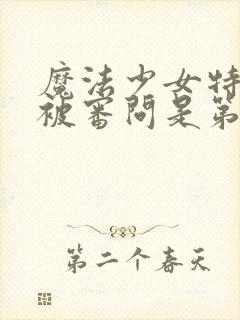 魔法少女特
被审问是第
第二个春天